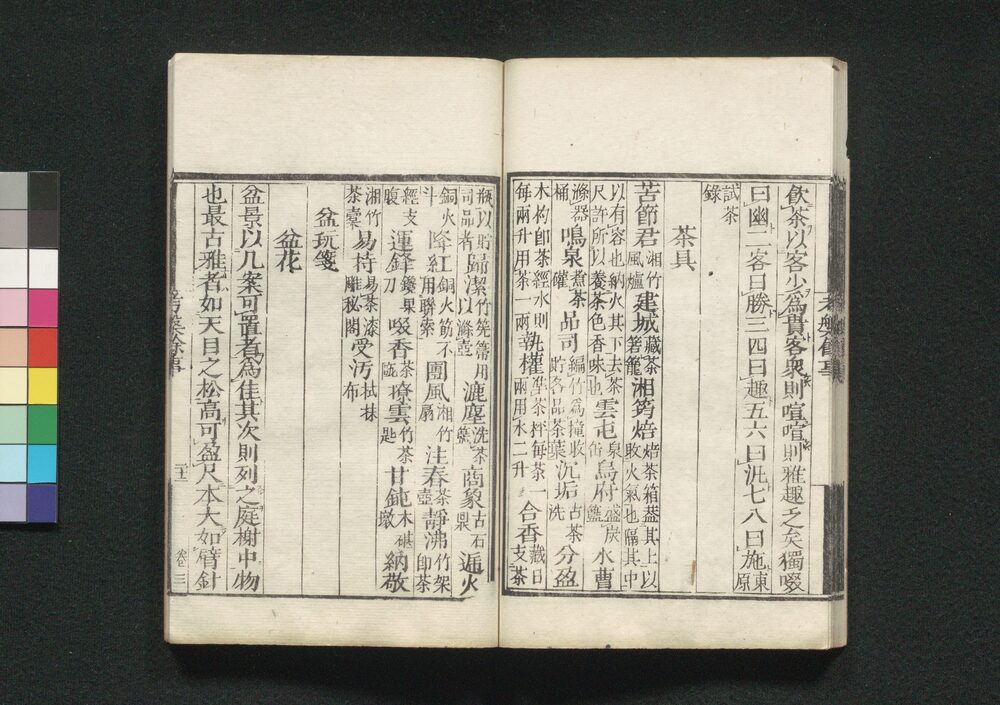 飲茶以客少爲貴客衆則喧喧則雅趣乏矣獨啜
曰幽二客曰勝三四曰趣五六曰汎七八曰施東原
試茶錄
茶具
苦節君湘竹風爐建城藏茶箬籠湘筠焙焙茶箱蓋其上以收火氣也隔其中
以有容也納火其下去茶尺許所以養茶色香味也雲屯泉缶烏府盛炭籃水曹
滌器桶鳴泉煮茶罐品司編竹爲撞收貯各品茶葉沉垢古茶洗分盈
木杓卽茶經水則每兩升用茶一兩執權準茶秤每茶一兩用水二升合香藏日支茶
瓶以貯司品者歸潔竹筅箒用以滌壺漉塵洗茶籃商象古石鼎遞火
銅火斗降紅銅火筋不用聯索團風湘竹扇注春茶壺靜沸竹架卽茶
經支腹運鋒鑱果刀啜香茶甌撩雲竹茶匙甘鈍木碪墩納敬
湘竹茶橐易持易茶漆雕秘閣受汚拭抹布
盆玩箋
盆花
盆景以几案可置者爲佳其次則列之庭榭中物
也最古雅者如天目之松高可盈尺本大如臂針
考槃餘事
考槃餘事
卷三